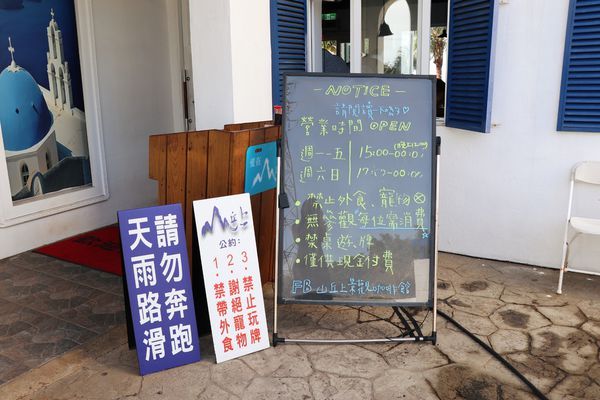 請勿奔跑
天雨路滑
山丘上
公約:
1.禁帶外食
2.謝絕寵物
3.禁止玩牌
—NOTICE—
請閱讀一下♡
營業時間 OPEN
週一-五 15:00-00:00
週六日
•禁止外食、寵物
•無參觀每位需消費
•禁桌遊、牌
•僅供現金付費
FB 山丘上景觀